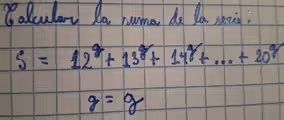 Calcular la suma de la serie.
S = 12^g + 13^g + 14^g + ... + 20^g
g = g